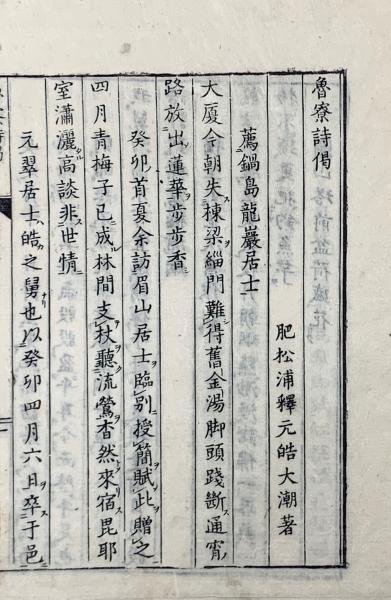 魯寮詩偈
肥松浦釋元皓大潮著
薦鍋島龍巖居士
大廈今朝失棟梁緇門難得舊金湯脚頭踐斷通霄
路放出蓮華步步香
癸卯首夏余訪眉山居士臨別授簡賦此贈之
四月青梅子已成林間支杖聽流鶯杳然來宿毘耶
室瀟灑高談非世情
元翠居士皓之舅也以癸卯四月六日卒于邑